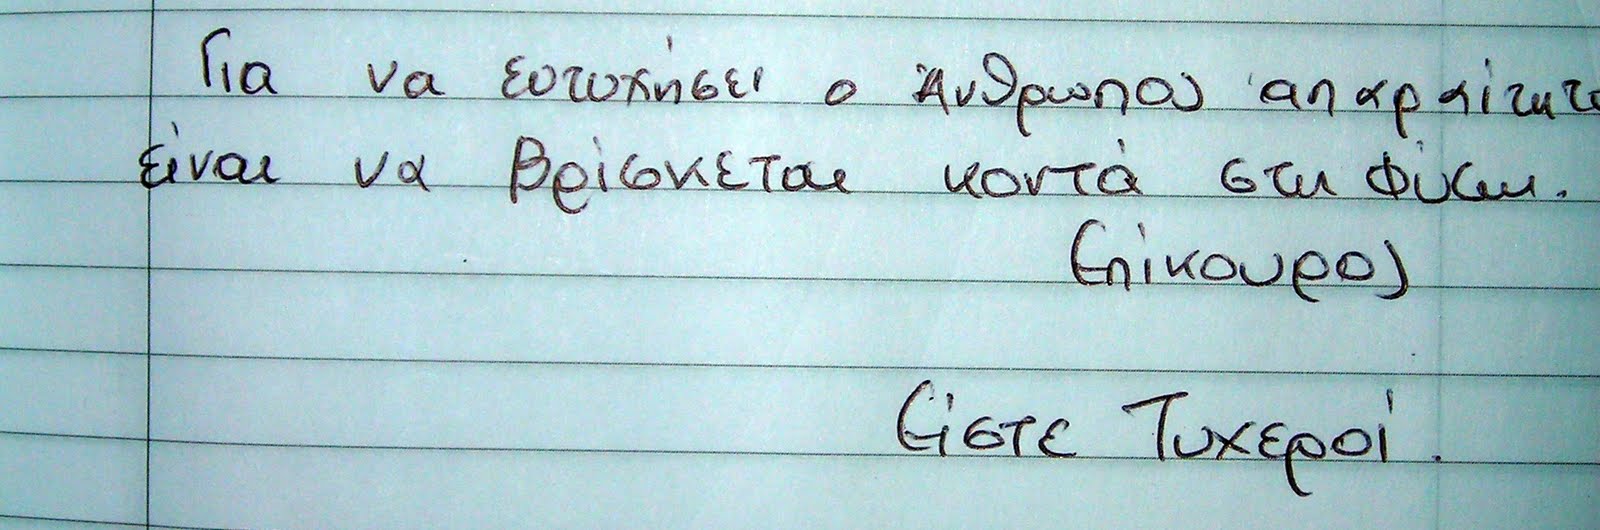 Για να ευτυχήσει ο Άνθρωπος απαραίτητο
είναι να βρίσκεται κοντά στη φύση.
Επίκουρος
Είστε Τυχεροί.